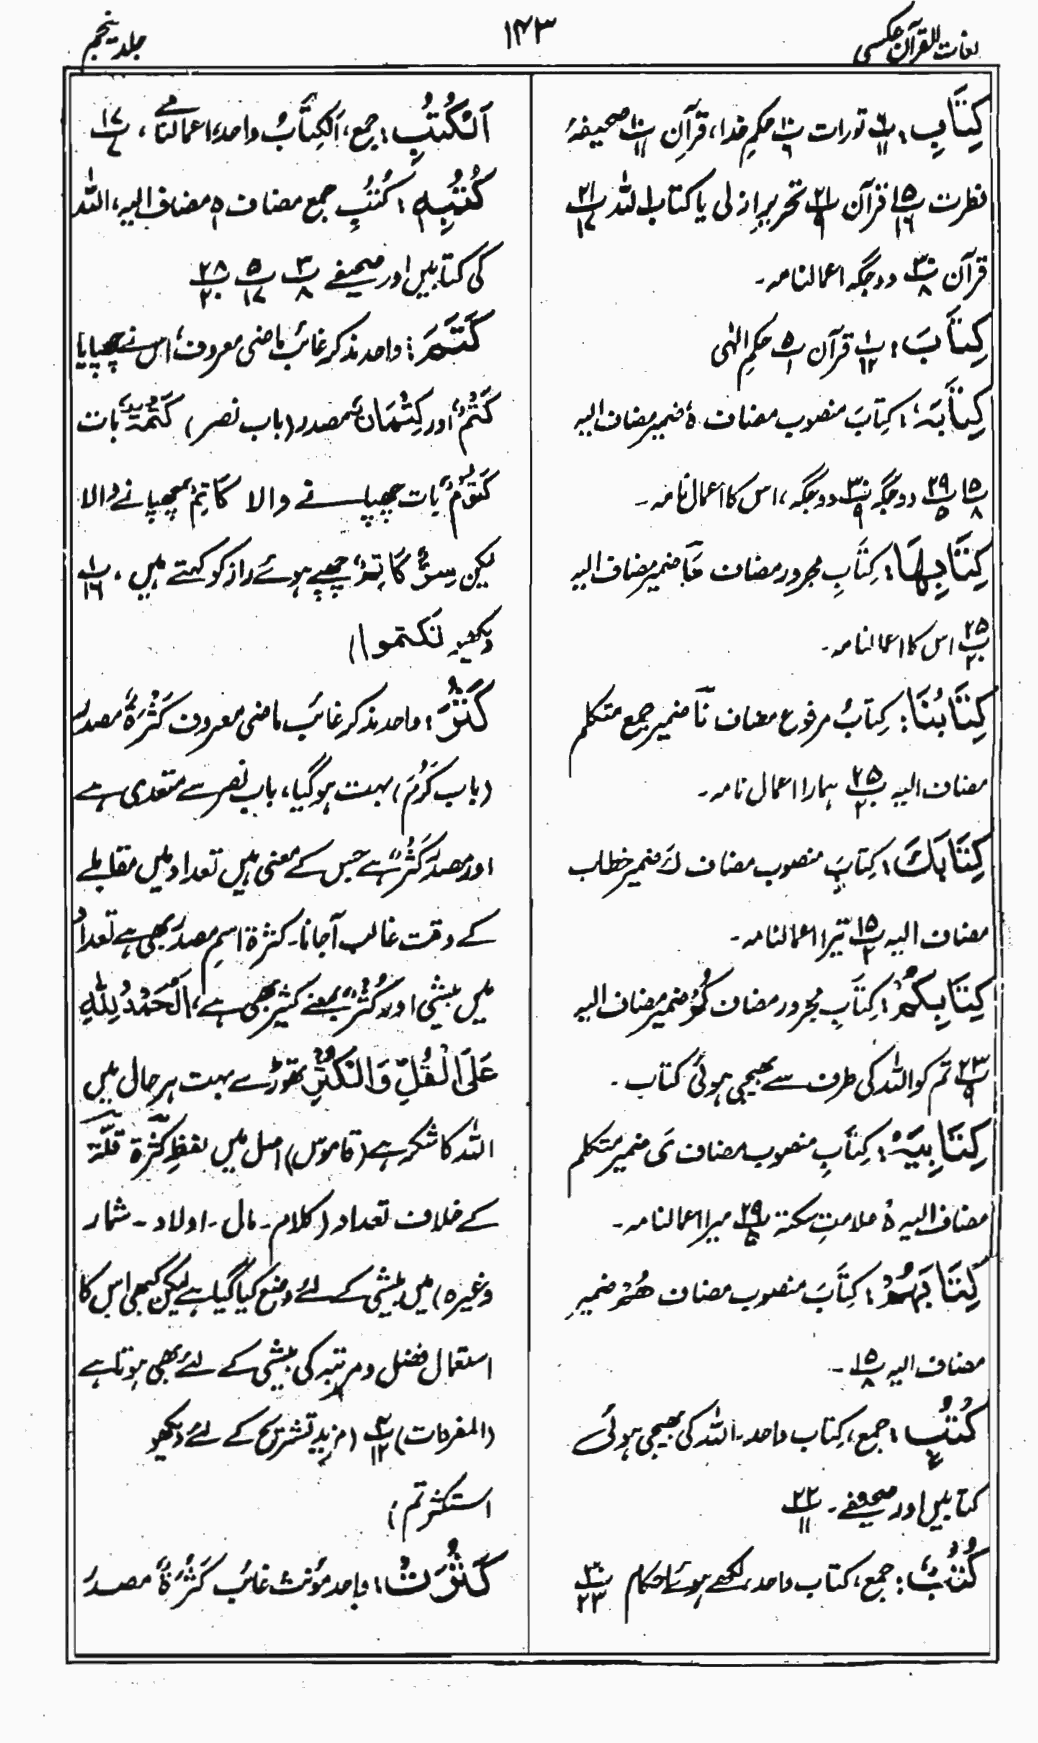 لغات القرآن عکسی
۱۴۳
جلد پنجم
کِتَابِ: پ۶/۱۱ تورات پ۱۰/۶ حکمِ خدا، قرآن پ۱۰/۱۱ صحیفۂ
فطرت پ۱۵/۱۶ قرآن پ۲۱/۹ تحریرِ ازلی یا کتاب اللہ پ۲۱/۱۷
قرآن پ۳۰/۸ دو جگہ اعمالنامہ۔
کِتَابَ: پ۱/۱۲ قرآن پ۵/۱ حکمِ الٰہی
کِتَابَہٗ: کِتابَ منصوب مضاف ہٗ ضمیر مضاف الیہ
پ۱۵/۸ پ۲۹/۵ دو جگہ پ۳۰/۹ دو جگہ، اس کا اعمال نامہ۔
کِتَابِھَا: کِتَابِ مجرور مضاف ھَا ضمیر مضاف الیہ
پ۲۵/۲۰ اس کا اعمالنامہ۔
کِتَابُنَا: کِتابُ مرفوع مضاف نَا ضمیر جمع متکلم
مضاف الیہ پ۲۵/۲۰ ہمارا اعمال نامہ۔
کِتَابَكَ: کِتابَ منصوب مضاف كَ ضمیر خطاب
مضاف الیہ پ۱۵/۲ تیرا اعمالنامہ۔
کِتَابِکُمْ: کِتَابِ مجرور مضاف کُمْ ضمیر مضاف الیہ
پ۲۳/۹ تم کو اللہ کی طرف سے بھیجی ہوئی کتاب۔
کِتَابِیَہْ: کِتَابِ منصوب مضاف یَ ضمیر متکلم
مضاف الیہ ہْ علامتِ سکتہ پ۲۹/۵ میرا اعمالنامہ۔
کِتَابَہُمْ: کِتَابَ منصوب مضاف ھُمْ ضمیر
مضاف الیہ پ۱۵/۸۔
کُتُبٍ: جمع، کِتاب واحد۔ اللہ کی بھیجی ہوئی
کتابیں اور صحیفے۔ پ۲۲/۱۱
کُتُبٌ: جمع، کتاب واحد، لکھے ہوئے احکام پ۳۰/۲۳
اَلْکُتُبِ: جمع، اَلْکِتَابُ واحد، اعمالنامے، پ۱۷/۷
کُتُبِہٖ: کُتُبِ جمع مضاف ہٖ مضاف الیہ، اللہ
کی کتابیں اور صحیفے پ۳/۸ پ۵/۱۷ پ۲۸/۲۰
کَتَمَ: واحد مذکر غائب ماضی معروف، اس نے چھپایا
کَتْمٌ اور کِتْمَانٌ مصدر (باب نصر) کَتَمَہٗ بات
کَتُوْمٌ بات چھپانے والا کَاتِمٌ چھپانے والا
لیکن سِرٌّ کَاتِمٌ چھپے ہوئے راز کو کہتے ہیں، پ۱/۱۶
دیکھیے تکتموا))
کَثُرَ: واحد مذکر غائب ماضی معروف کَثْرَۃٌ مصدر
(باب کَرُمَ) بہت ہو گیا، باب نصر سے متعدی ہے
اور مصدر کَثْرٌ ہے جس کے معنی ہیں تعداد میں مقابلے
کے وقت غالب آجانا۔ کثرۃ اسمِ مصدر بھی ہے تعداد
میں بیشی اور کُثْرٌ بمعنے کثیر بھی ہے، اَلْحَمْدُ لِلّٰہِ
عَلَی الْقُلِّ وَالْکُثْرِ تھوڑے بہت ہر حال میں
اللہ کا شکر ہے (قاموس) اصل میں لفظِ کثرۃ قلّۃ
کے خلاف تعداد (کلام۔ مال۔ اولاد۔ شمار
وغیرہ) میں بیشی کے لئے وضع کیا گیا ہے لیکن کبھی اس کا
استعمال فضل و مرتبہ کی بیشی کے لئے بھی ہوتا ہے
(المفردات) پ۴/۱۲ (مزید تشریح کے لئے دیکھو
استکثرتم)
کَثُرَتْ: واحد مؤنث غائب کَثْرَۃٌ مصدر